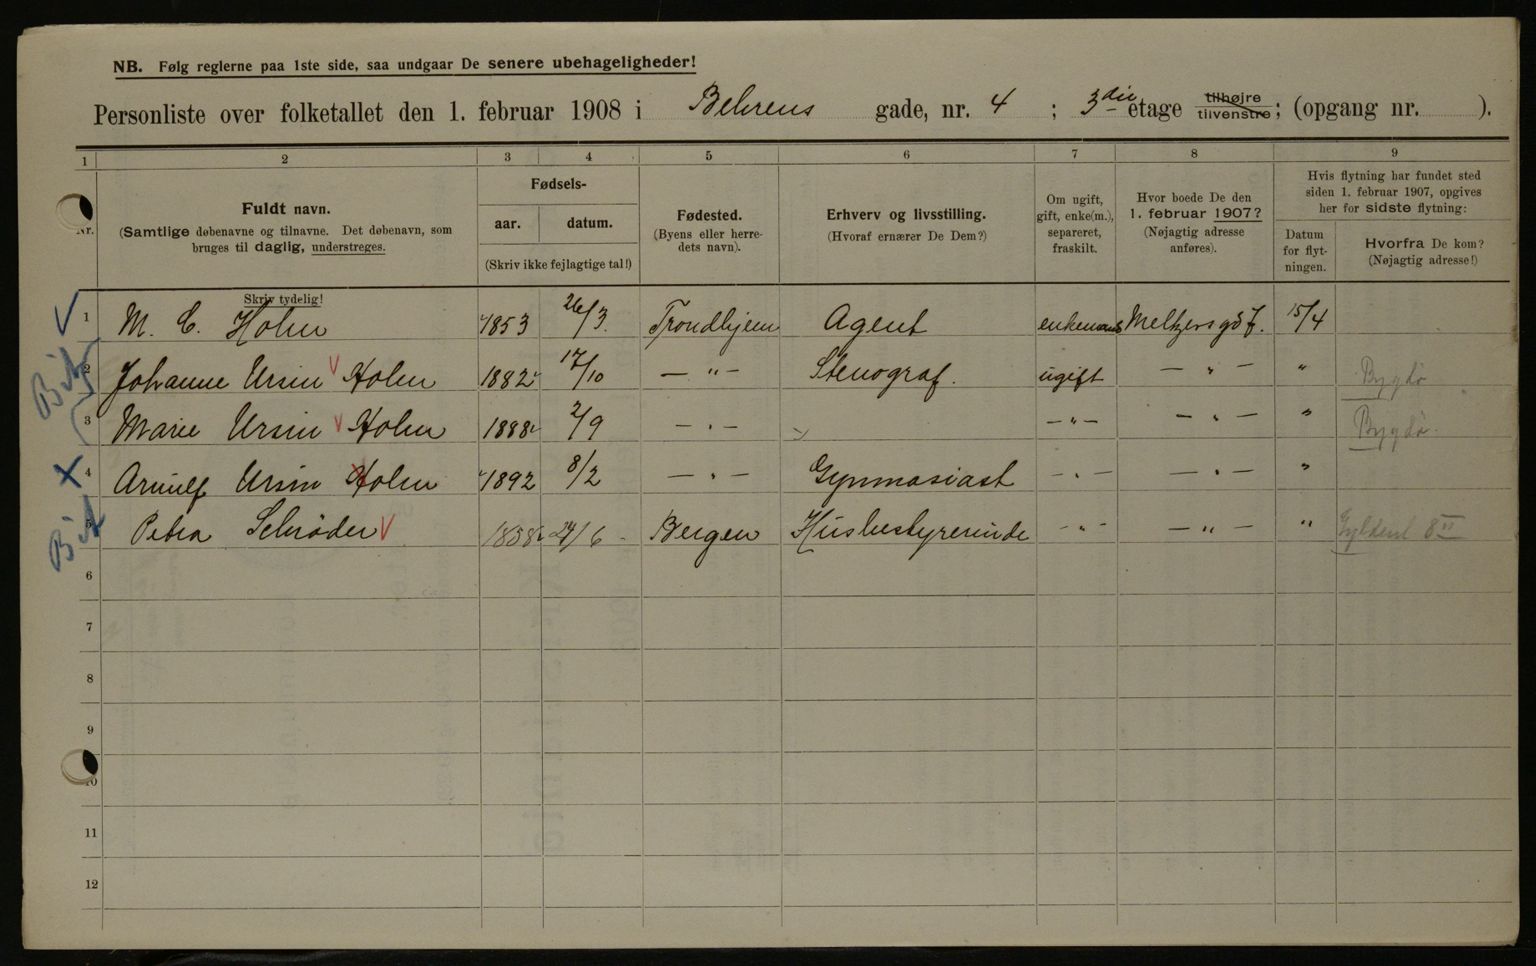 NB. Følg reglerne paa 1ste side, saa undgaar De senere ubehageligheder!
Personliste over folketallet den 1. februar 1908 i Behrens gade, nr. 4 ; 3die etage tilhøjre tilvenstre; (opgang nr. ).
1 2 3 4 5 6 7 8 9
Nr.
Fuldt navn.
(Samtlige døbenavne og tilnavne. Det døbenavn, som
bruges til daglig, understreges.
Skriv tydelig!
Fødsels-
aar. datum.
(Skriv ikke fejlagtige tal!)
Fødested.
(Byens eller herre-
dets navn).
Erhverv og livsstilling.
(Hvoraf ernærer De Dem?)
Om ugift,
gift, enke(m.),
separeret,
fraskilt.
Hvor boede De den
1. februar 1907?
(Nøjagtig adresse
anføres).
Hvis flytning har fundet sted
siden 1. februar 1907, opgives
her for sidste flytning:
Datum
for flyt-
ningen.
Hvorfra De kom?
(Nøjagtig adresse!)
1 M. C. Holm 1853 26/3. Trondhjem Agent enkemand Meltzersgd 7. 15/4
2 Johanne Ursin Holm 1882 17/10 — " — Stenograf. ugift — " — " Bygdø
3 Marie Ursin Holm 1888 2/9 — " — — " — — " — " Bygdø.
4 Arnulf Ursin Holm 1892 8/2 — " — Gymnasiast — " — — " — "
5 Petra Schrøder 1858 24/6 Bergen Husbestyrerinde — " — — " — " Gyldenl 8 VI
6
7
8
9
10
11
12
Bit
Bit